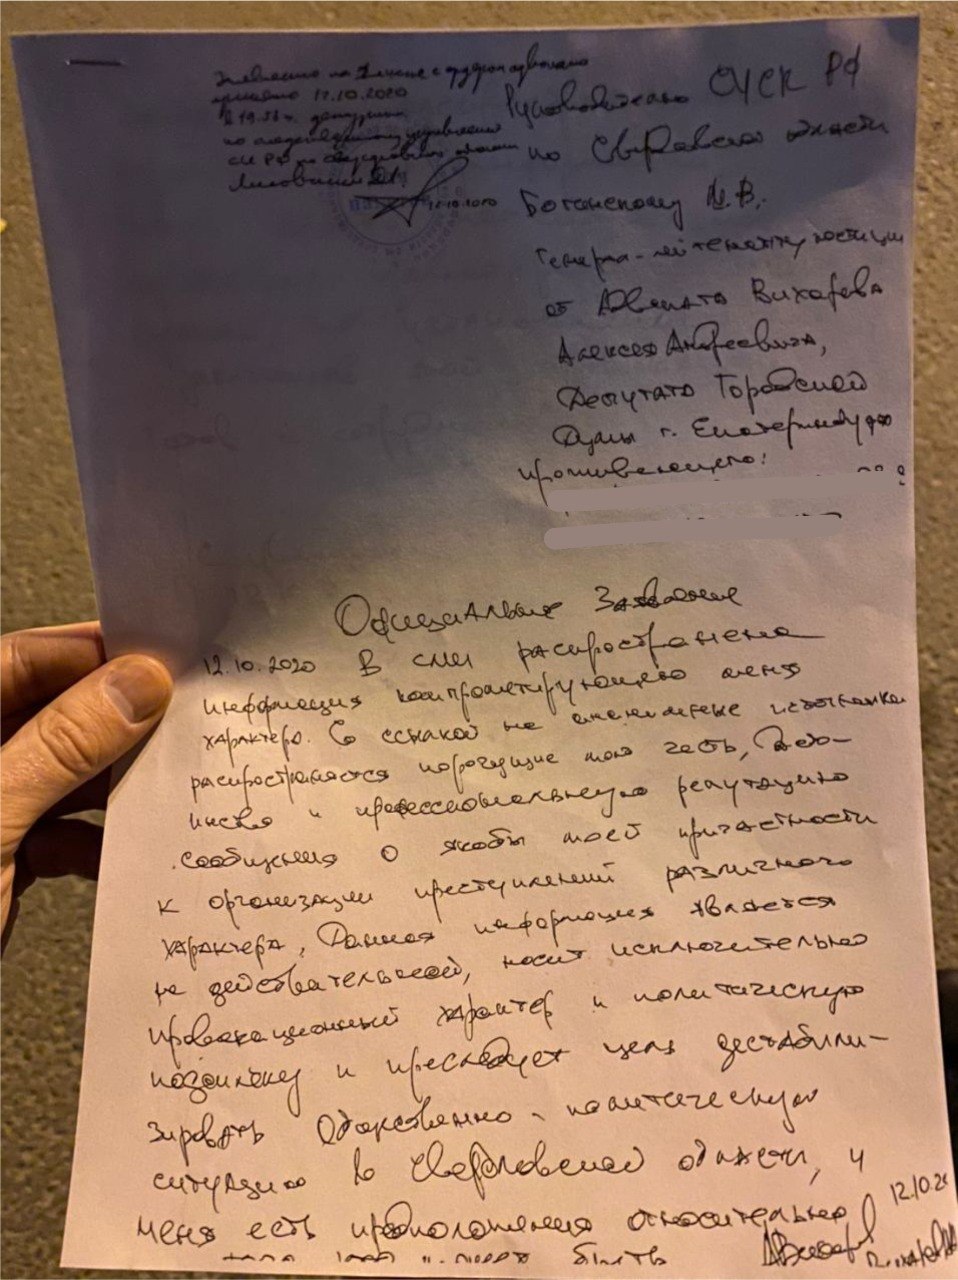 Заявление на 2 листе с ордером адвоката
принято 12.10.2020
в 19.56 ч. дежурным
по следственному управлению
СК РФ по Свердловской области
12.10.2020
Руководителю СУСК РФ
по Свердловской области
Богонскому М.В.
Генерал-лейтенанту юстиции
от Адвоката Вихарева
Алексея Андреевича,
Депутата Городской
Думы г. Екатеринбурга
проживающего:
Официальное Заявление
12.10.2020 В сми распространена
информация компрометирующего меня
характера. Со ссылкой на анонимные источники
распространяются порочащие мою честь, досто-
инство и профессиональную репутацию
сообщения о якобы моей причастности
к организации преступлений различного
характера, Данная информация является
не действительной, носит исключительно
провокационный характер и политическую
подоплеку и преследует цель дестабили-
зировать Общественно-политическую
ситуацию в Свердловской области, у
меня есть предположения относительно
того, кто может быть
12.10.20
Вихарев